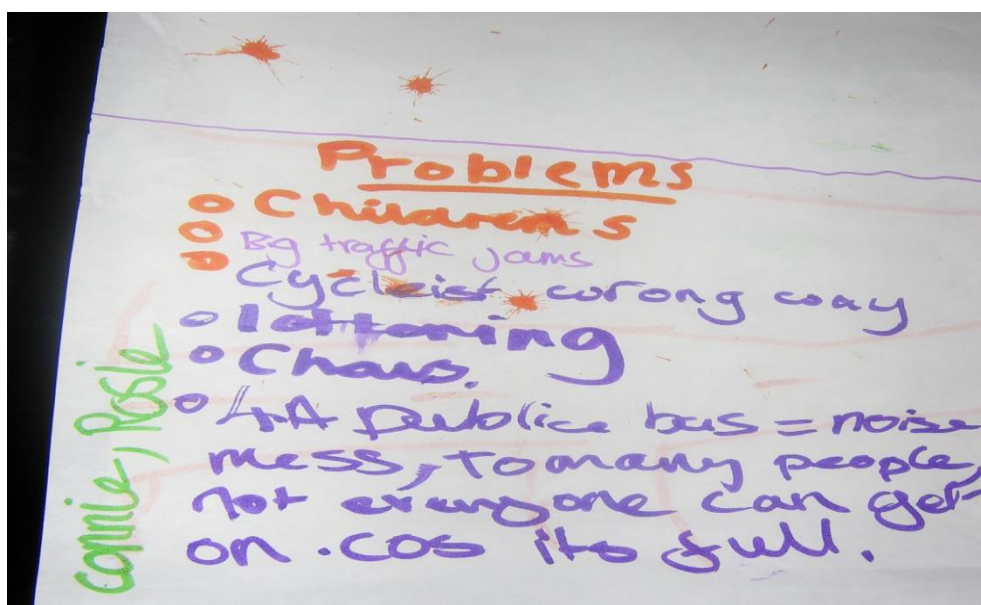 Problems
Childrens
Big traffic jams
Cycleist wrong way
Chavs.
4A publice bus = noise
mess, to many people,
not everyone can get
on . cos its full.
Connie, Rosie